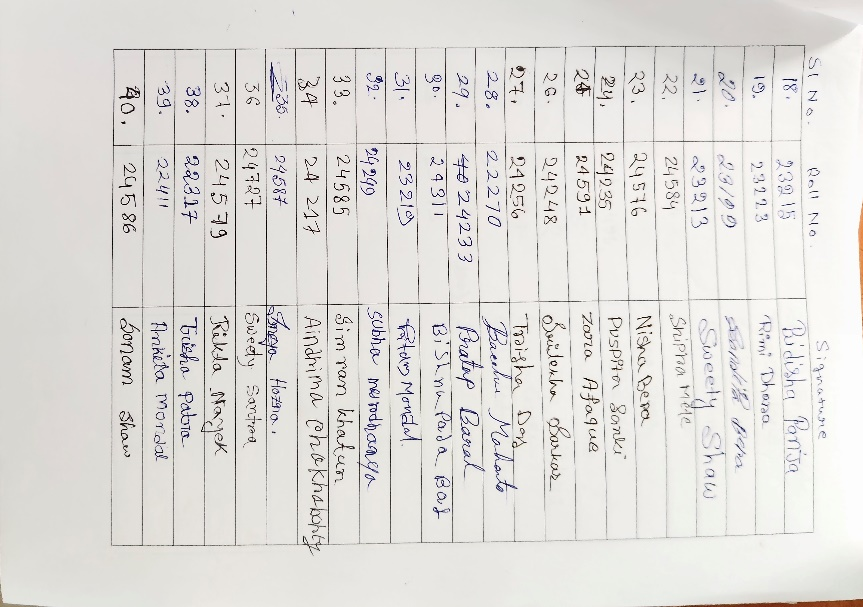 Sl No. Roll No. Signature
18. 23215 Bidisha Parija
19. 23223 Rimi Dhara
20. 23199 Bera
21. 23213 Sweety Shaw
22. 24584 Shipra
23. 24576 Nisha Bera
24. 24235 Puspita Sanki
25 24591 Zara Afaque
26. 24248 Sarkar
27. 24256 Trisha Das
28. 22270 Mahato
29. 24233 Pratap Barak
30. 24311 Bishnu Pada Bag
31. 23219 Mondal
32. 24249 Subha
33. 24585 Simran Khatun
34 24 217 Aindhima Chakhabohty
35. 24587 Hazra.
36 24727 Sweety Santra
37. 24579 Rikda Nayek
38. 22327 Trisha Patra
39. 22411 Ankita Mondal
40. 24586 Sonam Shaw